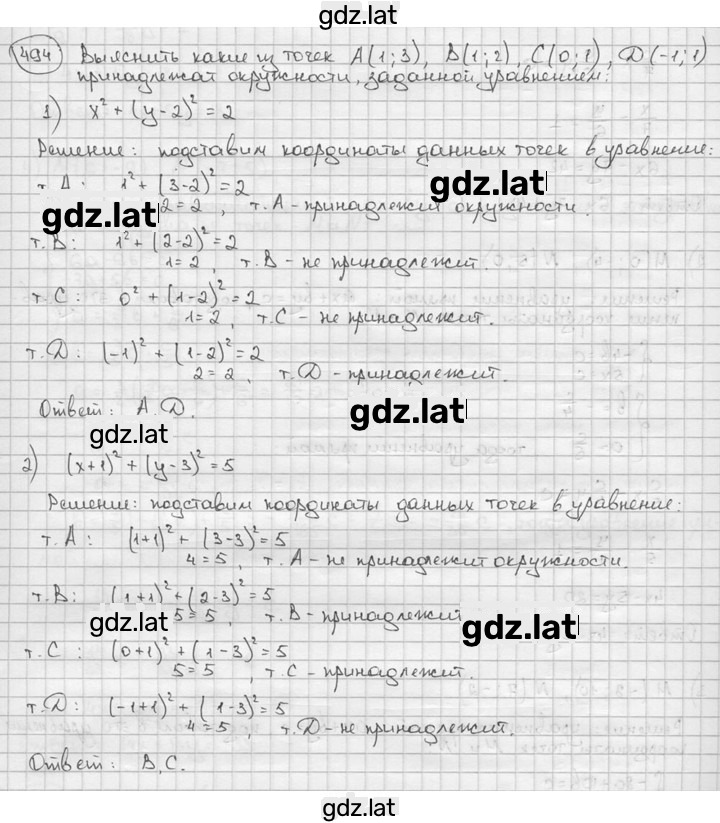 gdz.lat
494 Выяснить какие из точек A(1;3), B(1;2), C(0;1), D(-1;1)
принадлежат окружности, заданной уравнением:
1) x² + (y-2)² = 2
Решение: подставим координаты данных точек в уравнение:
т. A: 1² + (3-2)² = 2
gdz.lat
2 = 2, т. A - принадлежит окружности.
gdz.lat
т. B: 1² + (2-2)² = 2
1 = 2, т. B - не принадлежит.
т. C: 0² + (1-2)² = 2
1 = 2, т. C - не принадлежит.
т. D: (-1)² + (1-2)² = 2
2 = 2, т. D - принадлежит.
Ответ: A. D.
gdz.lat
gdz.lat
2) (x+1)² + (y-3)² = 5
Решение: подставим координаты данных точек в уравнение:
т. A: (1+1)² + (3-3)² = 5
4 = 5, т. A - не принадлежит окружности.
т. B: (1+1)² + (2-3)² = 5
5 = 5, т. B - принадлежит
gdz.lat
gdz.lat
т. C: (0+1)² + (1-3)² = 5
5 = 5, т. C - принадлежит.
т. D: (-1+1)² + (1-3)² = 5
4 = 5, т. D - не принадлежит.
Ответ: B, C.
gdz.lat